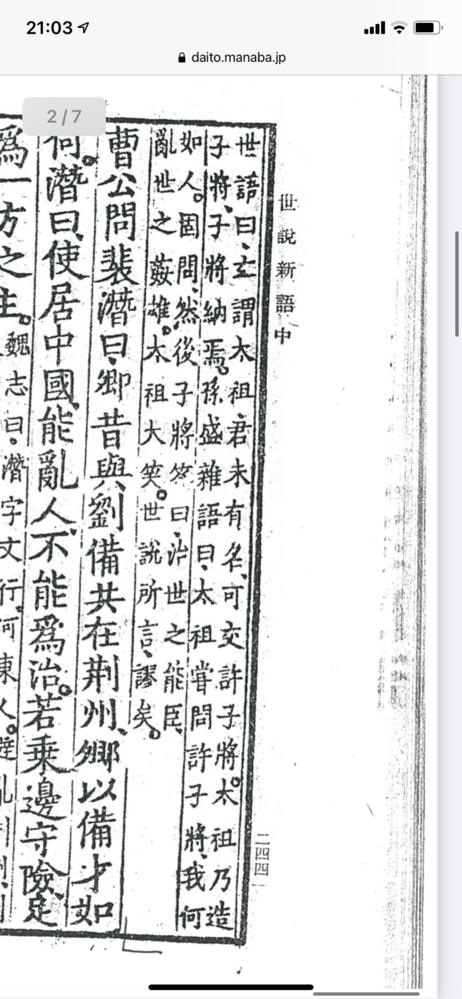 21:03
daito.manaba.jp
2 / 7
世說新語中
二四四
世語曰、玄謂太祖、君未有名、可交許子將。太祖乃造
子將、子將納焉。孫盛雜語曰、太祖嘗問許子將、我何
如人。固問、然後子將答曰、治世之能臣、
亂世之姦雄。太祖大笑。世說所言、謬矣。
曹公問裴潛曰、卿昔與劉備共在荊州、卿以備才如
何。潛曰、使居中國、能亂人、不能爲治。若乘邊守險、足
爲一方之主。魏志曰、潛字文行、河東人。